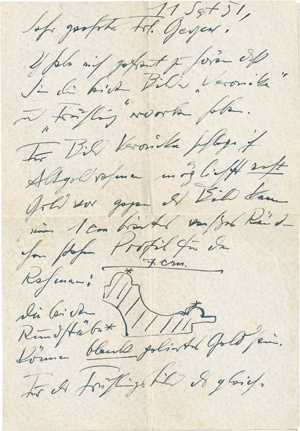 11 Sept 51,
Sehr geehrte Frl. Geyser.
Ich habe mich gefreut zu hören daß
Sie die beiden Bilder „Veronika"
u. „Frühling" erworben haben.
Für Bild Veronika schlage ich
Altgoldrahmen möglichst echt
Gold vor gegen das Bild kann
ein 1 cm breiter weißes Ränd-
chen stehen Profil für den
Rahmen:
7 cm.
die beiden
Rundstäbe*
können blank poliertes Gold sein.
Für das Frühlingsbild das gleiche.